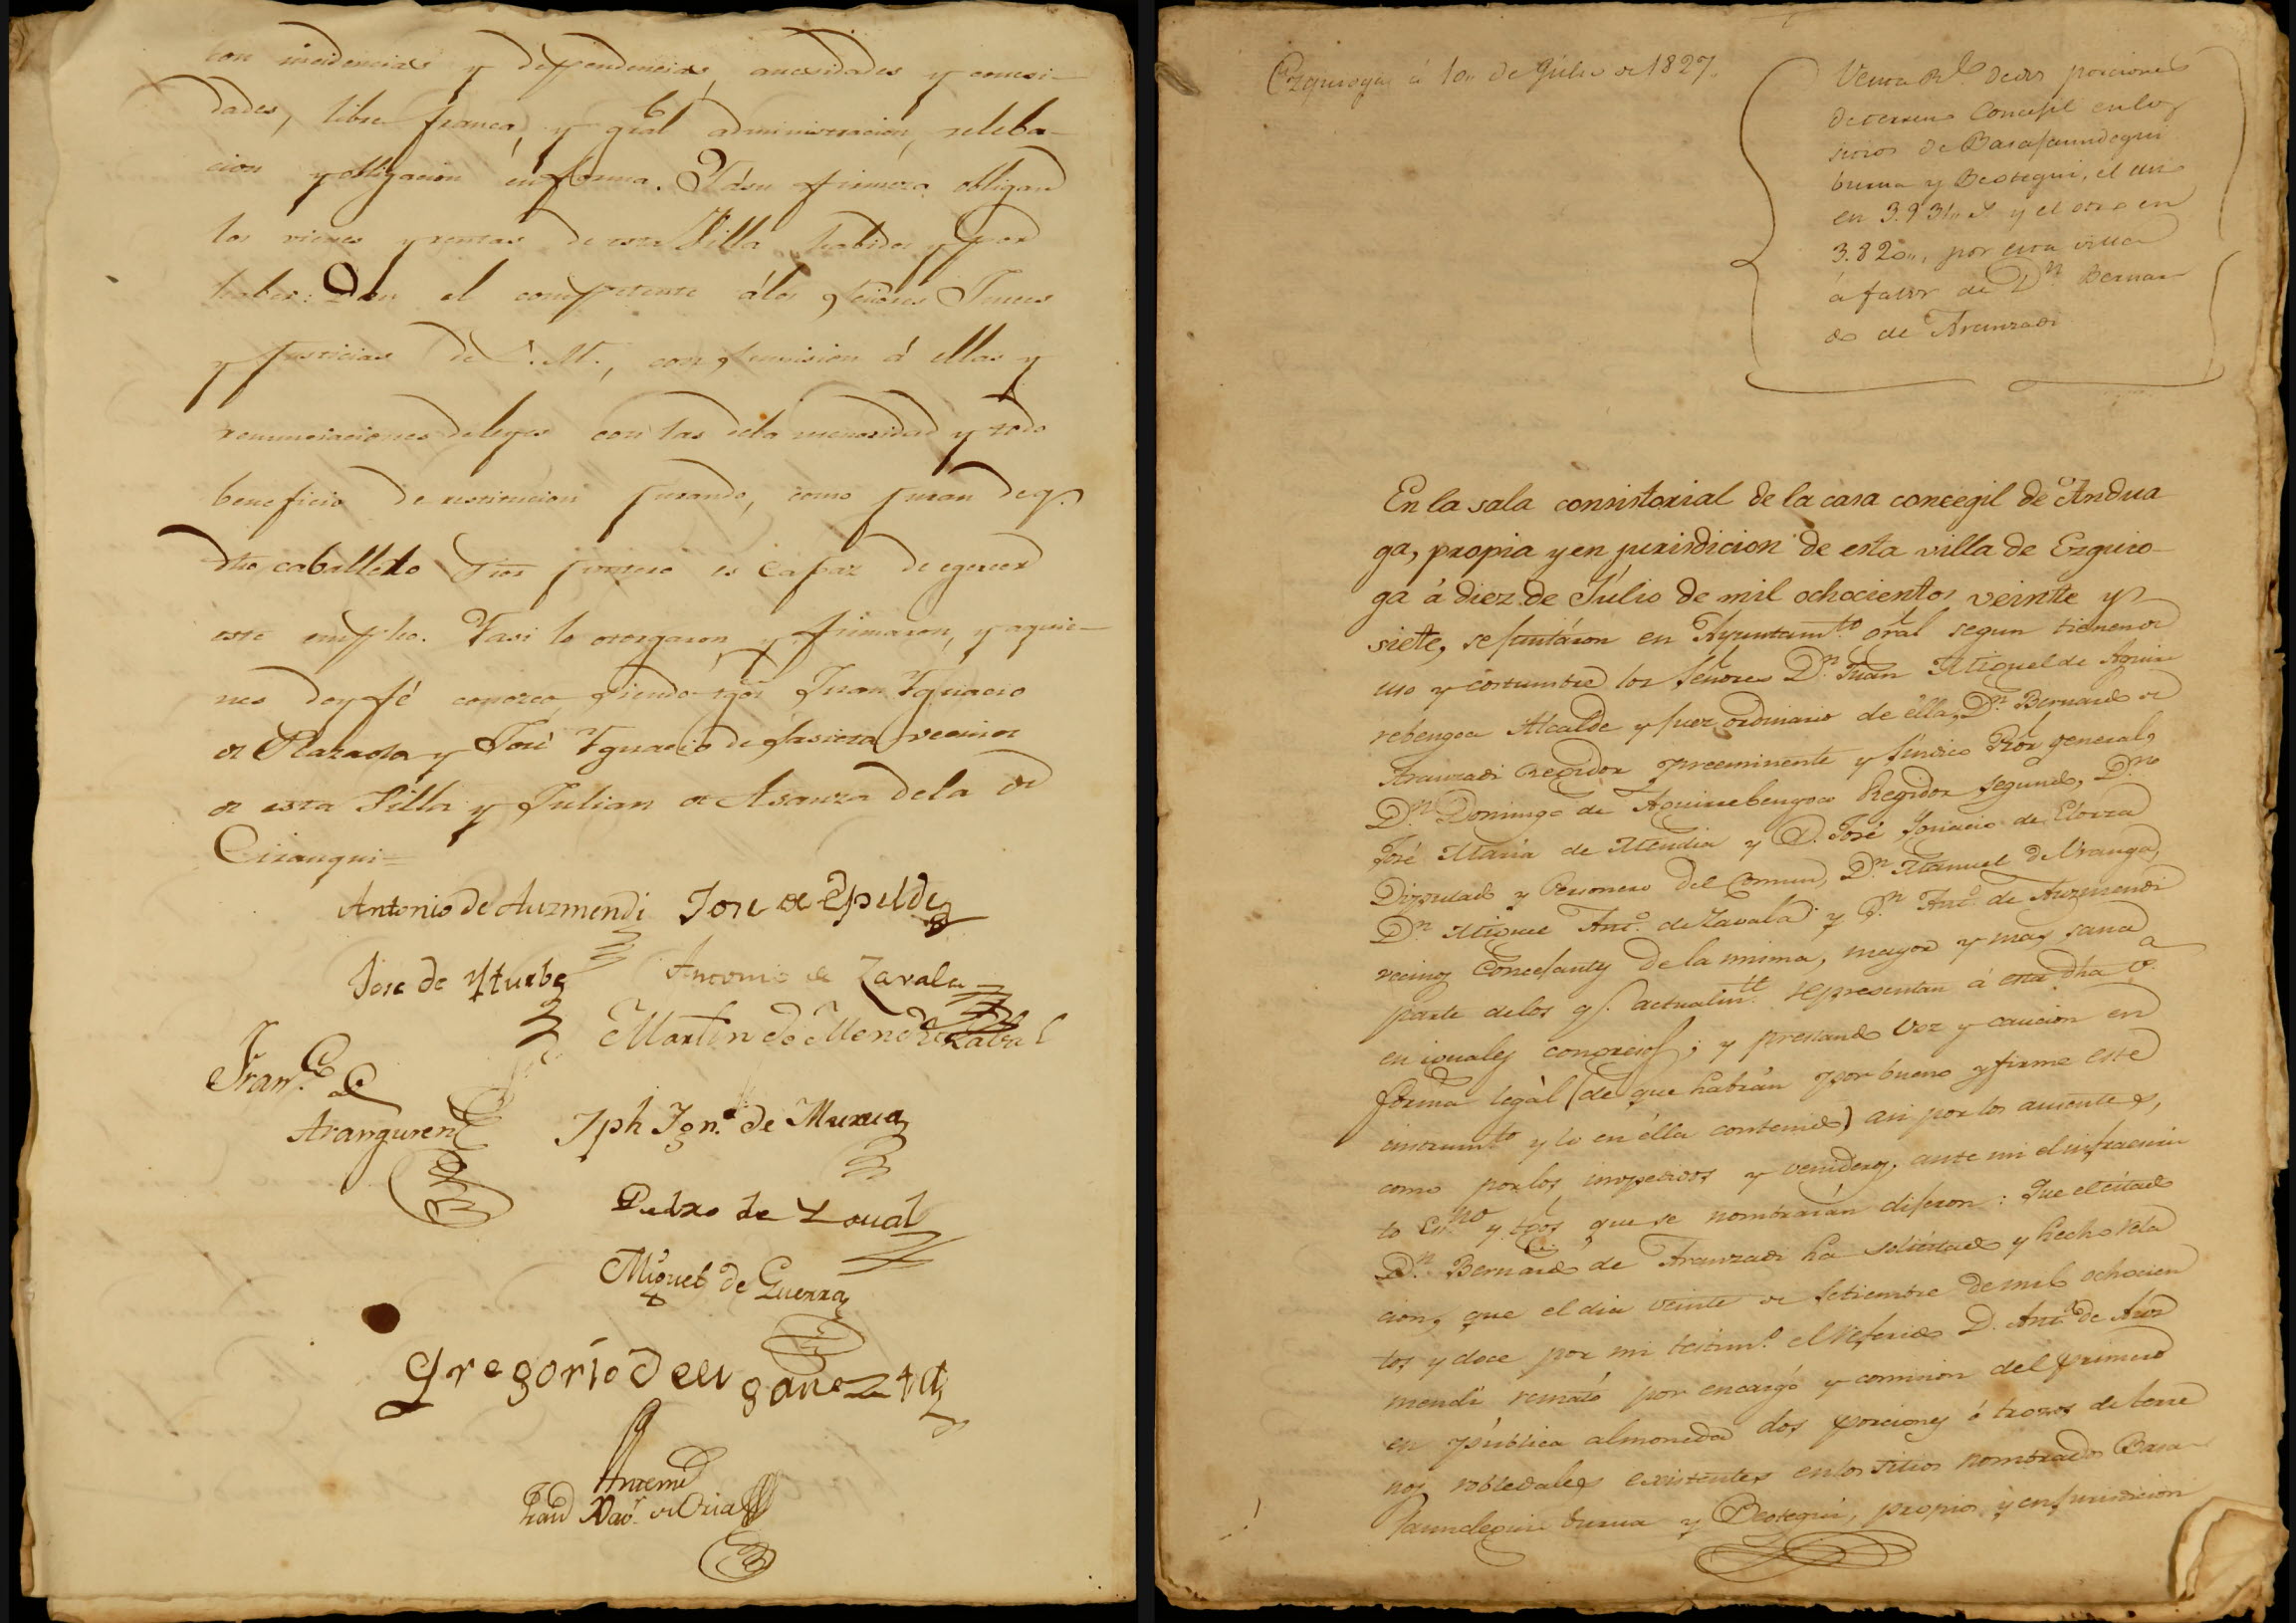 con incidencias y dependencias, anexidades y conexi-
dades, libre franca, y gral administracion, releba-
cion y obligacion en forma. Y á su firmeza obligan
los vienes y rentas de esta Villa habidos y por
haber: Dan el competente á los Señores Jueces
y Justicias de S. M., con sumision á ellas y
renunciaciones de leyes con las de la menoridad y todo
beneficio de restitucion jurando, como juran de q.e
dho caballero Sior es capaz de egercer
este empleo. Y asi lo otorgaron, y firmaron, y a quie-
nes doy fé conozco, siendo tgos Juan Ygnacio
de Plazaola y José Ygnacio de Lasierra vecinos
de esta Villa y Julian de Asanza de la de
Cirauqui=
Antonio de Auzmendi Jose de Epelde
Jose de Yturbe Antonio de Zavala
Martin de Mendizabal
Fran.co de
Aranguren
Jph Ign.o de Murua
Pedro de
Miguel de Guerra
Gregorio de
Ante mi
Ezquioga á 10,, de Julio de 1827.
Venta Rl. de dos porciones
de terreno Concejil en los
sitios de Basajaundegui
burua y Beotegui, el uno
en 3.931,, r.s y el otro en
3.820,, por esta villa
á favor de D.n Bernar
do de Aranzadi
En la sala consistorial de la casa concegil de Andua
ga, propia y en jurisdicion de esta villa de Ezquio-
ga á diez de Julio de mil ochocientos veinte y
siete, se juntáron en Ayuntam.to gral segun tienen de
uso y costumbre los Señores D.n Juan Miguel de Aguir
rebengoa Alcalde y juez ordinario de ella, D.n Bernardo de
Aranzadi Regidor preeminente y síndico Pror general,
D.n Domingo de Aguirrebengoa Regidor segundo, D.n
José Maria de Mendia y D. José Ignacio de Elorza
Diputado y Personero del Comun, D.n Manuel de Uranga,
D.n Miguel Ant.o de Zavala y D.n Ant.o de Auzmendi
vecinos Concejantes de la misma, mayor y mas sana
parte de los q.e actualm.te representan á esta dha v.a
en iguales congresos; y prestando voz y caucion en
forma legál (de que habrán por bueno y firme este
instrum.to y lo en élla contenido) asi por los ausentes,
como por los impedidos y venideros, ante mi el infraescri
to Es.no y tgos que se nombrarán dijeron: Que el citado
D.n Bernardo de Aranzadi ha solicitado y hecho rela
cion, que el dia veinte de Setiembre de mil ochocien
tos y doce por mi testim.o el referido D. Ant.o de Auz
mendi remató por encargo y comision del primero
en pública almoneda dos porciones ó trozos de terre
nos robledales existentes en los sitios nombrados Basa-
jaundegui burua y Beotegui, propios y en jurisdicion